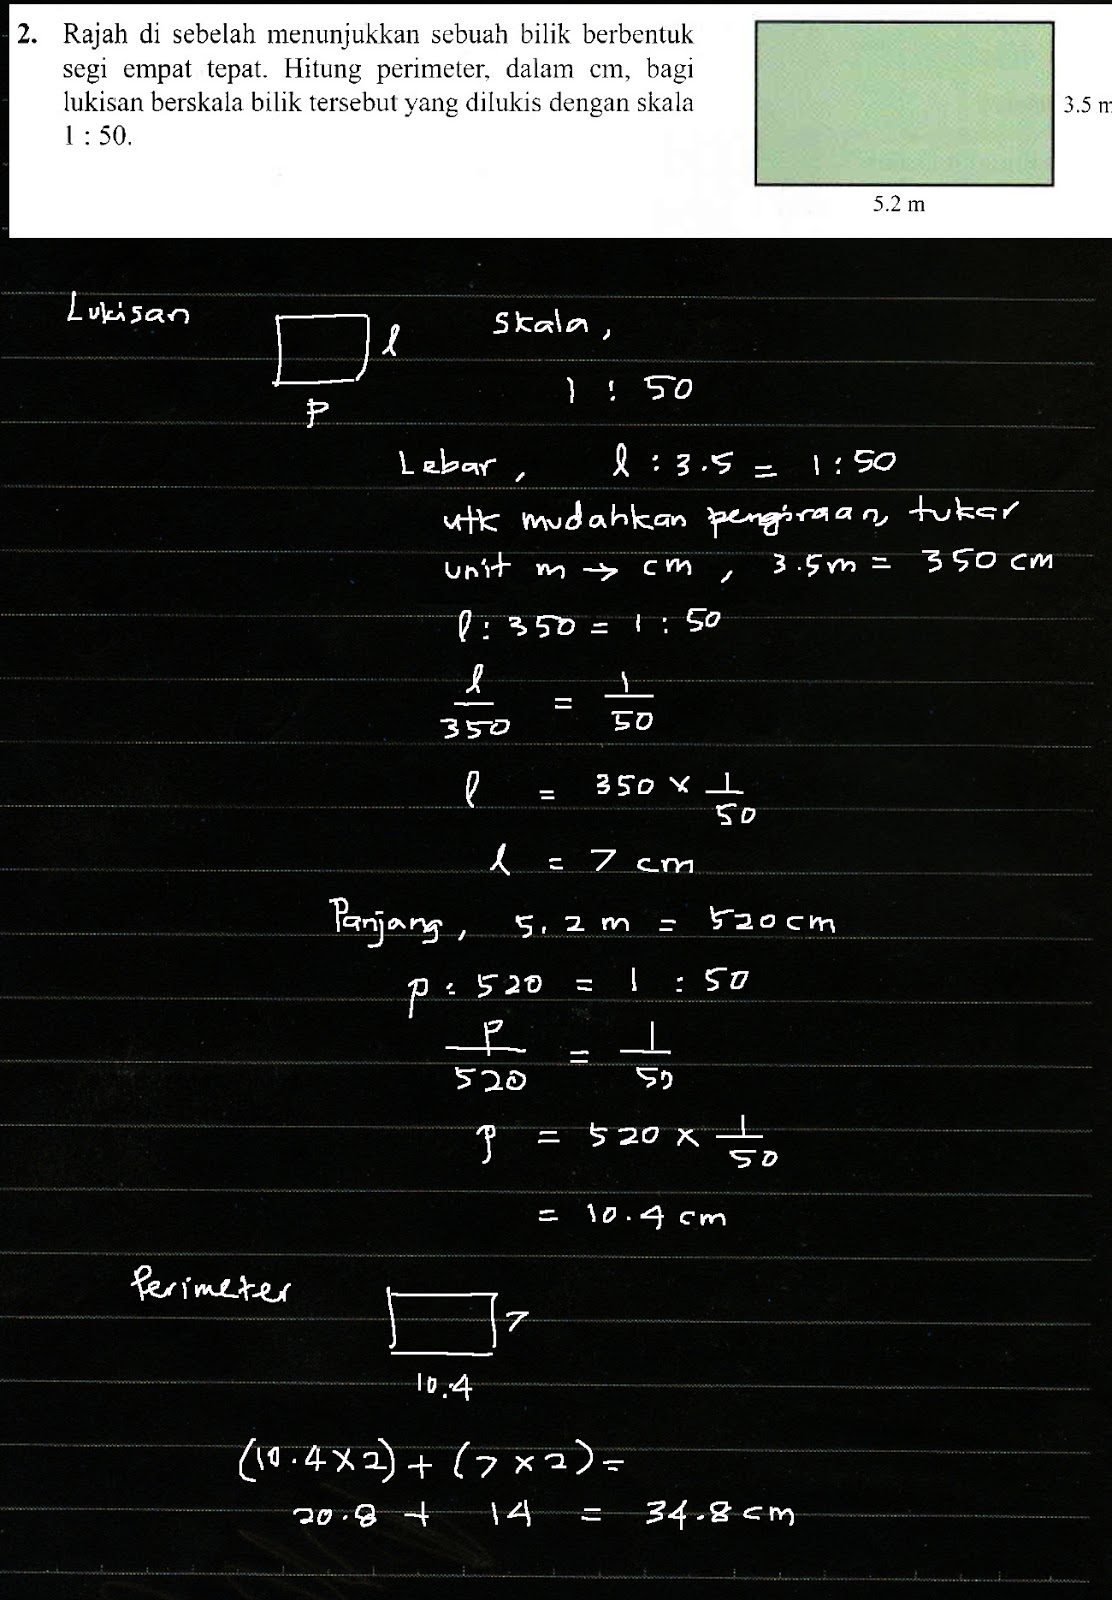 2. Rajah di sebelah menunjukkan sebuah bilik berbentuk
segi empat tepat. Hitung perimeter, dalam cm, bagi
lukisan berskala bilik tersebut yang dilukis dengan skala
1 : 50.
3.5 m
5.2 m
Lukisan
l
p
Skala,
1 : 50
Lebar, l : 3.5 = 1 : 50
utk mudahkan pengiraan, tukar
unit m → cm, 3.5m = 350 cm
l : 350 = 1 : 50
l/350 = 1/50
l = 350 × 1/50
l = 7 cm
Panjang, 5.2 m = 520 cm
p : 520 = 1 : 50
p/520 = 1/50
p = 520 × 1/50
= 10.4 cm
Perimeter
7
10.4
(10.4 × 2) + (7 × 2) =
20.8 + 14 = 34.8 cm